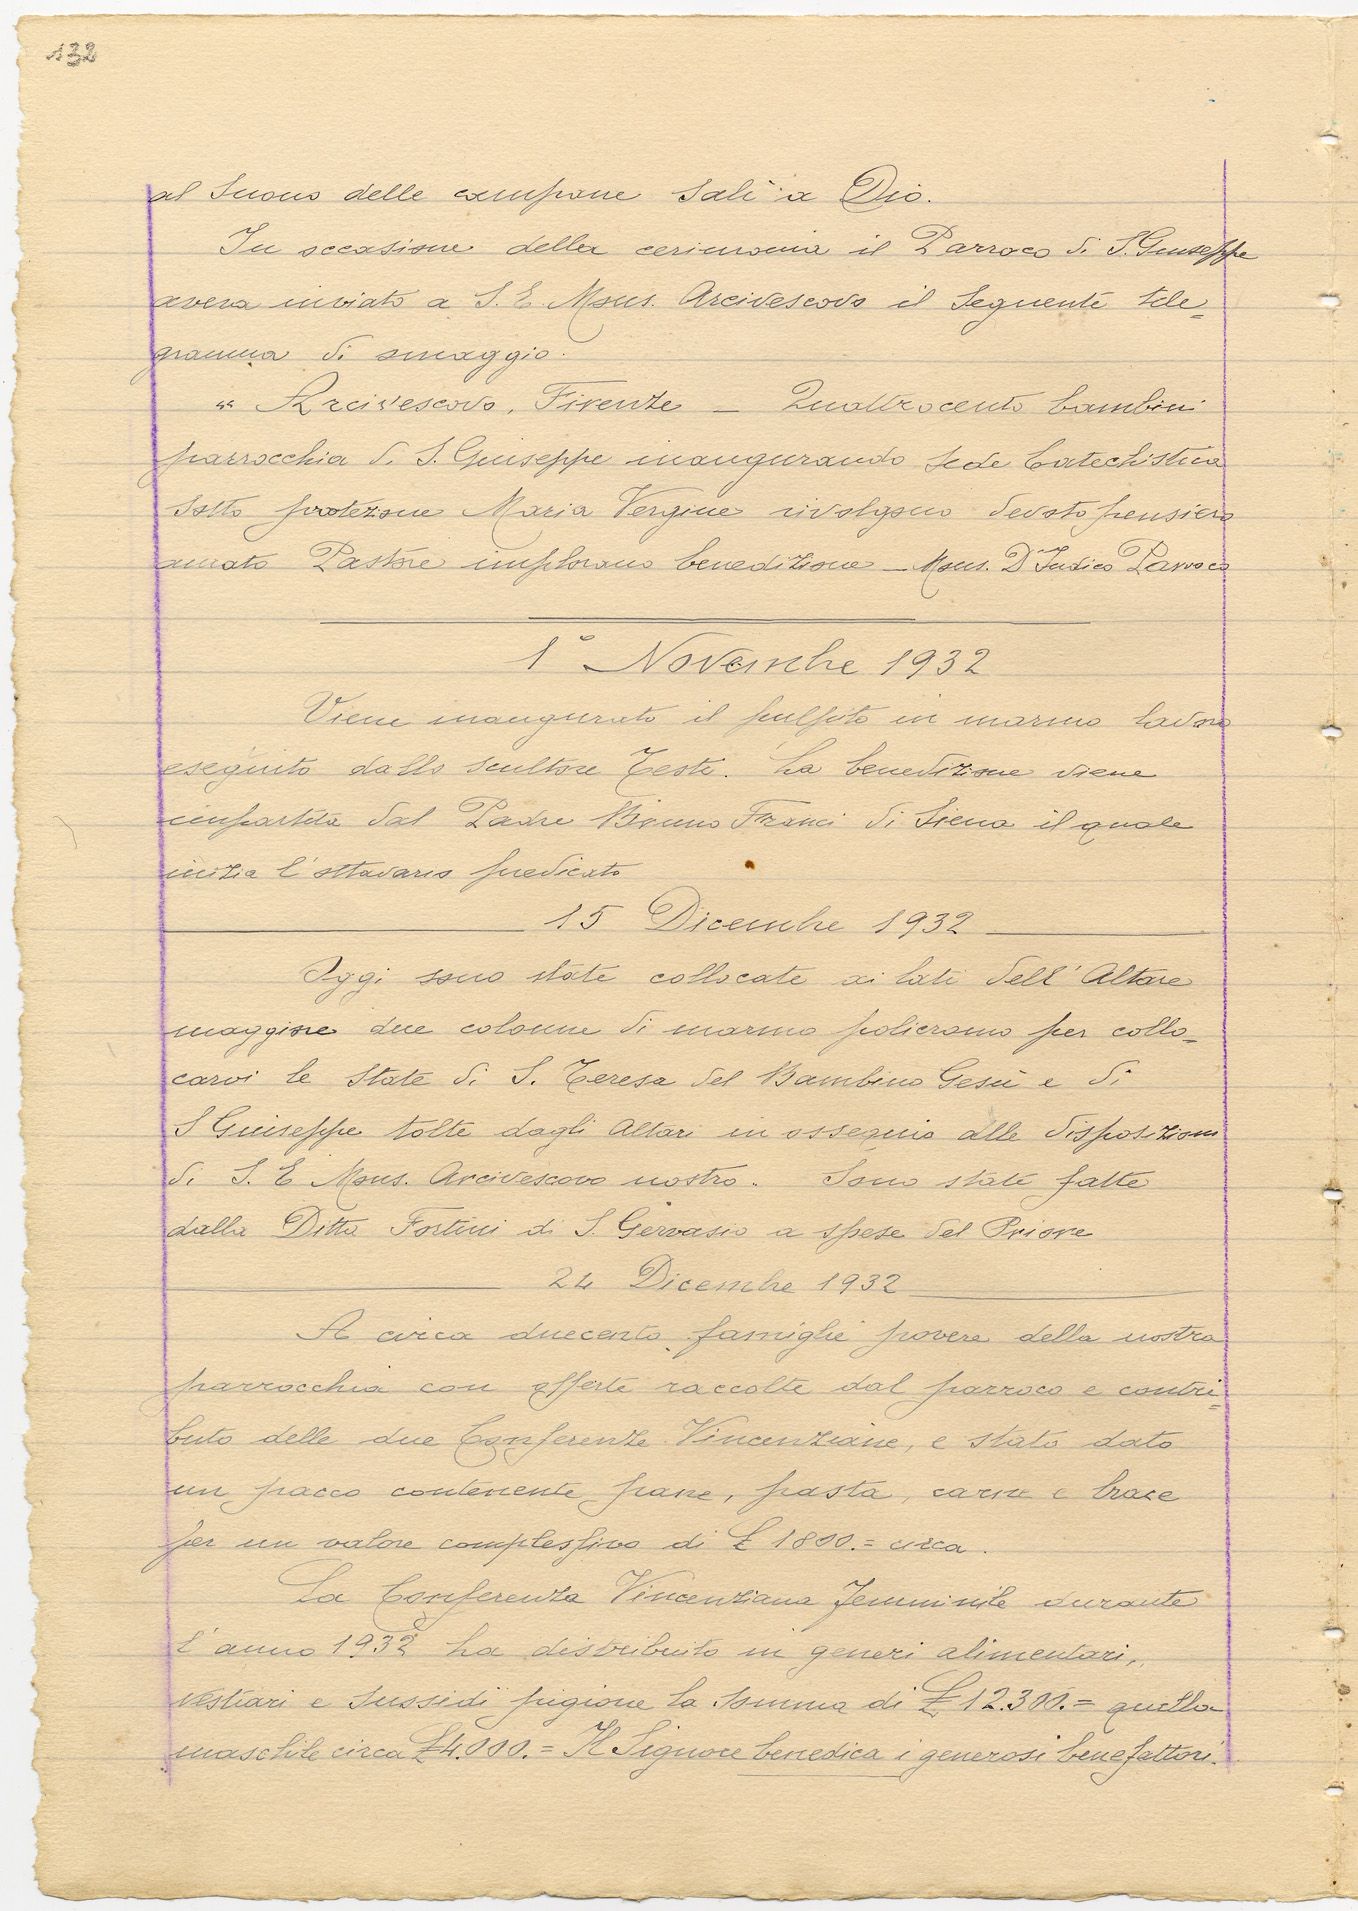 132
al suono delle campane salì a Dio.
In occasione della cerimonia il Parroco di S. Giuseppe
aveva inviato a S. E. Mons. Arcivescovo il seguente tele=
gramma di omaggio.
"Arcivescovo, Firenze — Quattrocento bambini
parrocchia di S. Giuseppe inaugurando sede Catechistica
sotto protezione Maria Vergine rivolgono devoto pensiero
amato Pastore implorano benedizione — Mons. D'Indico Parroco
1° Novembre 1932
Viene inaugurato il pulpito in marmo lavoro
eseguito dallo scultore Testi. La benedizione viene
impartita dal Padre Bruno Franci di Siena il quale
inizia l'ottavario predicato
15 Dicembre 1932
Oggi sono state collocate ai lati dell'Altare
maggiore due colonne di marmo policromo per collo=
carvi le state di S. Teresa del Bambino Gesù e di
S Giuseppe tolte dagli Altari in ossequio alle disposizioni
di S. E Mons. Arcivescovo nostro. Sono state fatte
dalla Ditta Fortini di S. Gervasio a spese del Priore
24 Dicembre 1932
A circa duecento famiglie povere della nostra
parrocchia con offerte raccolte dal parroco e contri=
buto delle due Conferenze Vincenziane, e stato dato
un pacco contenente pane, pasta, carne e brace
per un valore complessivo di £ 1800.= circa.
La Conferenza Vincenziana femminile durante
l'anno 1932 ha distribuito in generi alimentari,
vestiari e sussidi pigione la somma di £ 12.300.= quella
maschile circa £ 4.000.= Il Signore benedica i generosi benefattori.